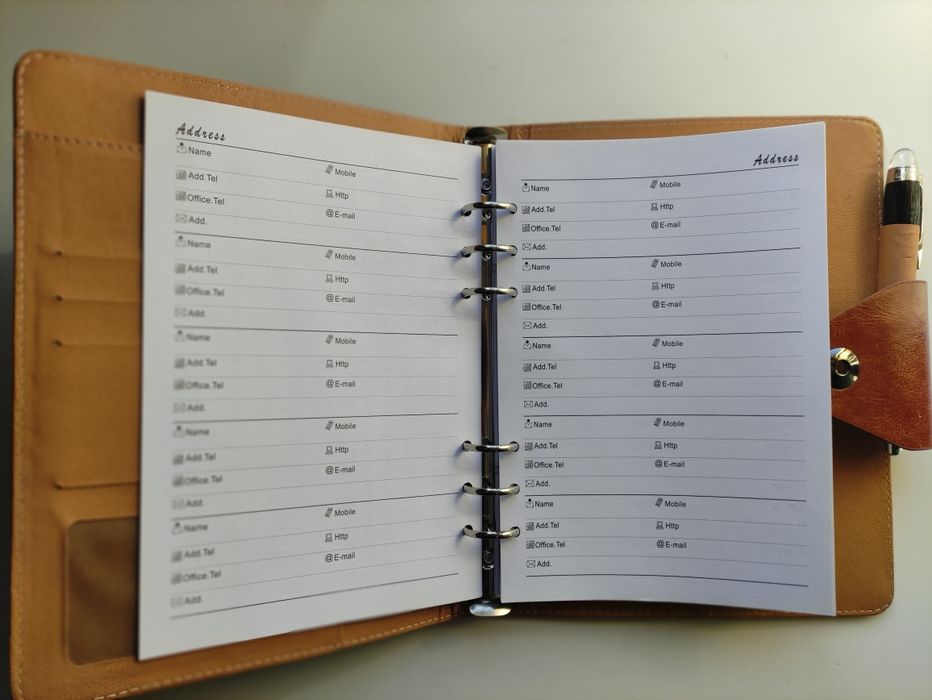 Address
Name
Mobile
Add.Tel
Http
Office.Tel
@ E-mail
Add.
Name
Mobile
Add.Tel
Http
Office.Tel
@ E-mail
Add.
Name
Mobile
Add.Tel
Http
Office.Tel
@ E-mail
Add.
Name
Mobile
Add.Tel
Http
Office.Tel
@ E-mail
Add.
Name
Mobile
Add.Tel
Http
Office.Tel
@ E-mail
Add.
Address
Name
Mobile
Add.Tel
Http
Office.Tel
@ E-mail
Add.
Name
Mobile
Add.Tel
Http
Office.Tel
@ E-mail
Add.
Name
Mobile
Add.Tel
Http
Office.Tel
@ E-mail
Add.
Name
Mobile
Add.Tel
Http
Office.Tel
@ E-mail
Add.
Name
Mobile
Add.Tel
Http
Office.Tel
@ E-mail
Add.